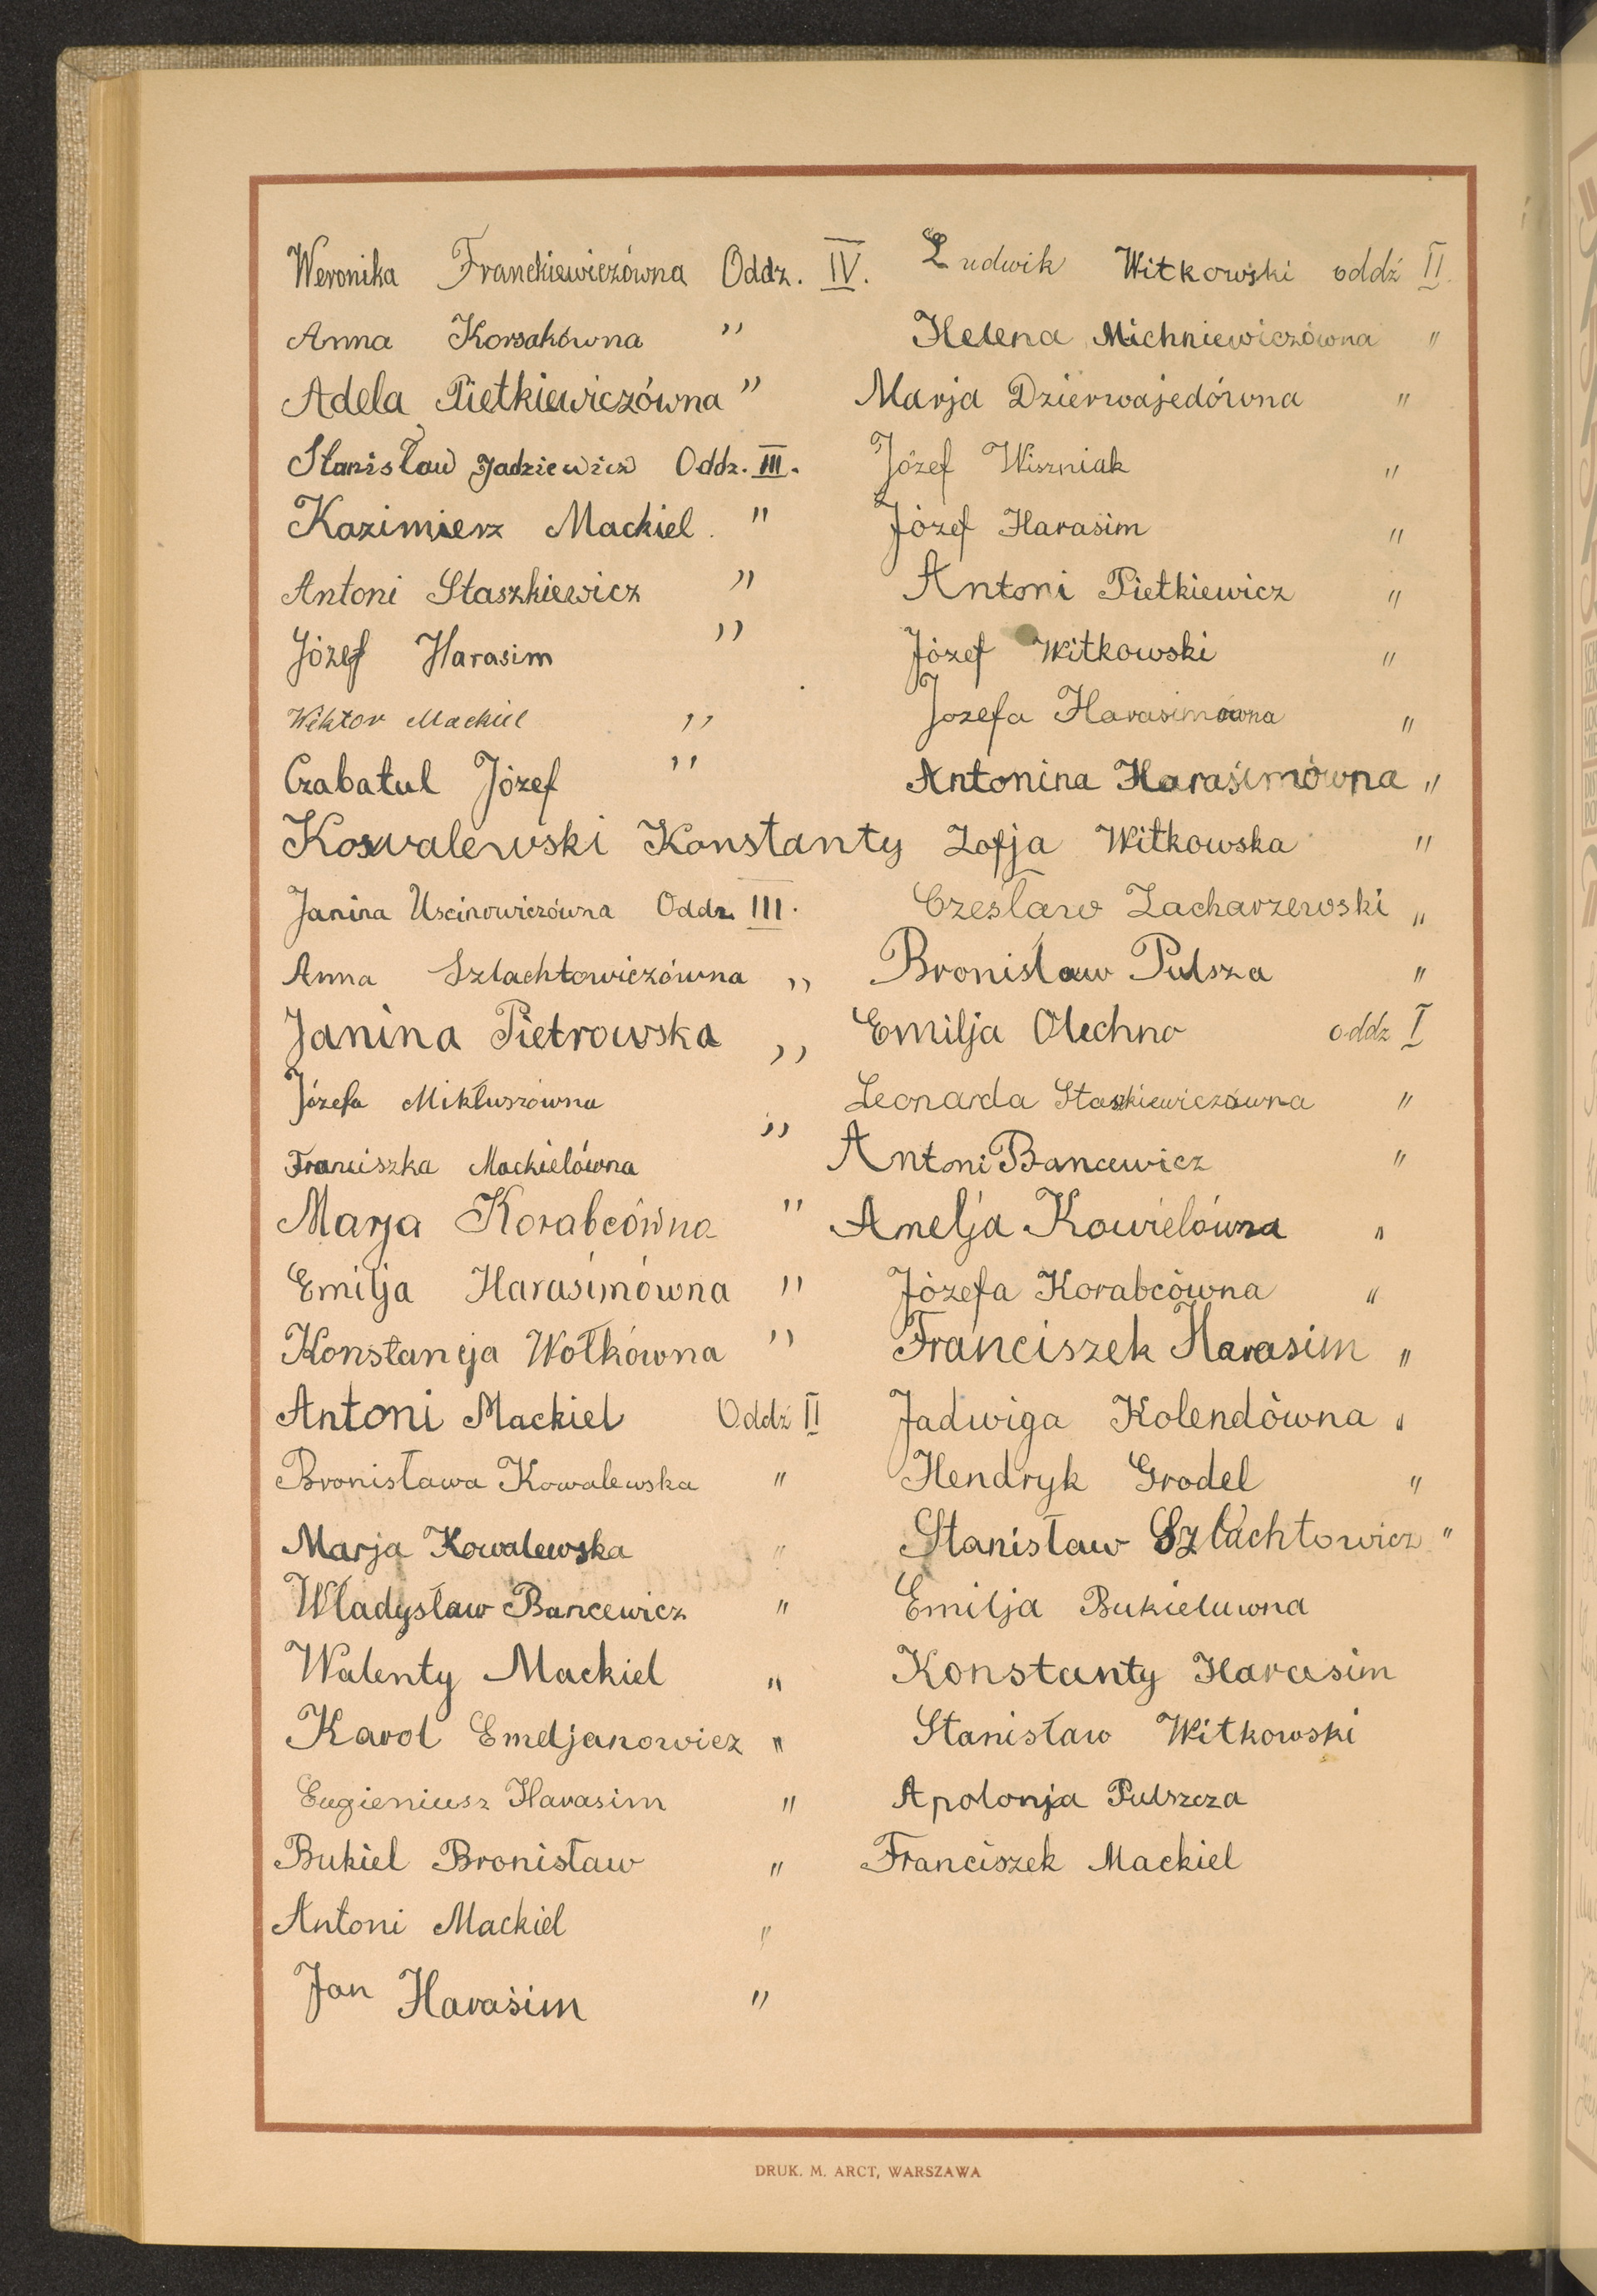 Weronika Franckiewiczówna Oddz. IV.
Anna Korsakówna "
Adela Pietkiewiczówna "
Stanisław Jadziewicz Oddz. III.
Kazimierz Mackiel. "
Antoni Staszkiewicz "
Józef Harasim "
Wiktor Mackiel "
Czabatul Józef "
Kowalewski Konstanty
Janina Uscinowiczówna Oddz. III.
Anna Szlachtowiczówna "
Janina Pietrowska "
Józefa Mikłuszówna "
Franciszka Mackielówna
Marja Korabcówna "
Emilja Harasimówna "
Konstancja Wołkówna "
Antoni Mackiel Oddź II
Bronisława Kowalewska "
Marja Kowalewska "
Władysław Bancewicz "
Walenty Mackiel "
Karol Emeljanowicz "
Eugieniusz Harasim "
Bukiel Bronisław "
Antoni Mackiel "
Jan Harasim "
Ludwik Witkowski oddź II.
Helena Michniewiczówna "
Marja Dzierwajedówna "
Józef Wiszniak "
Józef Harasim "
Antoni Pietkiewicz "
Józef Witkowski "
Jozefa Harasimówna "
Antonina Harasimówna "
Zofja Witkowska "
Czesław Zacharzewski "
Bronisław Pulsza "
Emilja Olechno oddz I
Leonarda Staszkiewiczówna "
Antoni Bancewicz "
Amelja Kowielówna "
Józefa Korabcówna "
Franciszek Harasim "
Jadwiga Kolendówna "
Hendryk Grodel "
Stanisław Szlachtowicz "
Emilja Bukieluwna
Konstanty Harasim
Stanisław Witkowski
Apolonja Pulszcza
Franciszek Mackiel
DRUK. M. ARCT, WARSZAWA